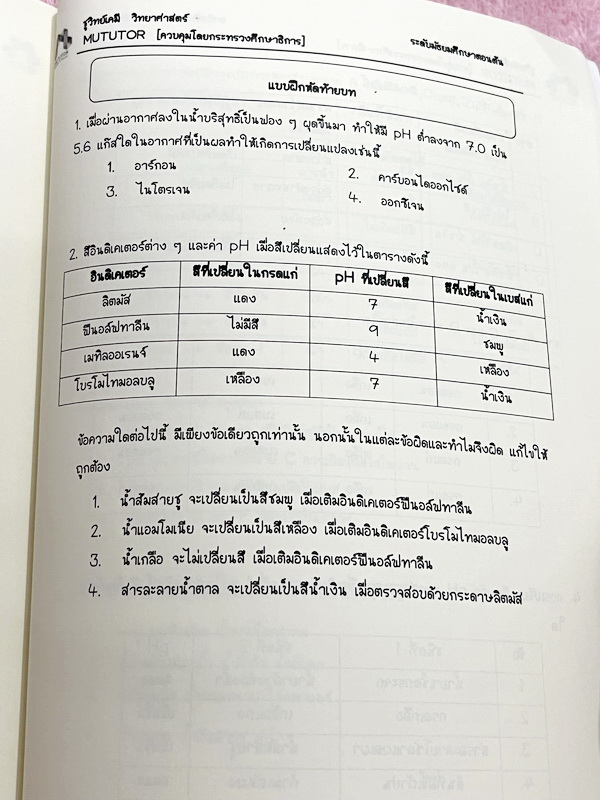 รู้วิทย์เคมี วิทยาศาสตร์
MUTUTOR [ควบคุมโดยกระทรวงศึกษาธิการ]
ระดับมัธยมศึกษาตอนต้น
แบบฝึกหัดท้ายบท
1. เมื่อผ่านอากาศลงในน้ำบริสุทธิ์เป็นฟอง ๆ ผุดขึ้นมา ทำให้มี pH ต่ำลงจาก 7.0 เป็น
5.6 แก๊สใดในอากาศที่เป็นผลทำให้เกิดการเปลี่ยนแปลงเช่นนี้
1. อาร์กอน 2. คาร์บอนไดออกไซด์
3. ไนโตรเจน 4. ออกซิเจน
2. สีอินดิเคเตอร์ต่าง ๆ และค่า pH เมื่อสีเปลี่ยนแสดงไว้ในตารางดังนี้
อินดิเคเตอร์ สีที่เปลี่ยนในกรดแก่ pH ที่เปลี่ยนสี สีที่เปลี่ยนในเบสแก่
ลิตมัส แดง 7 น้ำเงิน
ฟีนอล์ฟทาลีน ไม่มีสี 9 ชมพู
เมทิลออเรนจ์ แดง 4 เหลือง
โบรโมไทมอลบลู เหลือง 7 น้ำเงิน
ข้อความใดต่อไปนี้ มีเพียงข้อเดียวถูกเท่านั้น นอกนั้นในแต่ละข้อผิดและทำไมจึงผิด แก้ไขให้
ถูกต้อง
1. น้ำส้มสายชู จะเปลี่ยนเป็นสีชมพู เมื่อเติมอินดิเคเตอร์ฟีนอล์ฟทาลีน
2. น้ำแอมโมเนีย จะเปลี่ยนเป็นสีเหลือง เมื่อเติมอินดิเคเตอร์โบรโมไทมอลบลู
3. น้ำเกลือ จะไม่เปลี่ยนสี เมื่อเติมอินดิเคเตอร์ฟีนอล์ฟทาลีน
4. สารละลายน้ำตาล จะเปลี่ยนเป็นสีน้ำเงิน เมื่อตรวจสอบด้วยกระดาษลิตมัส